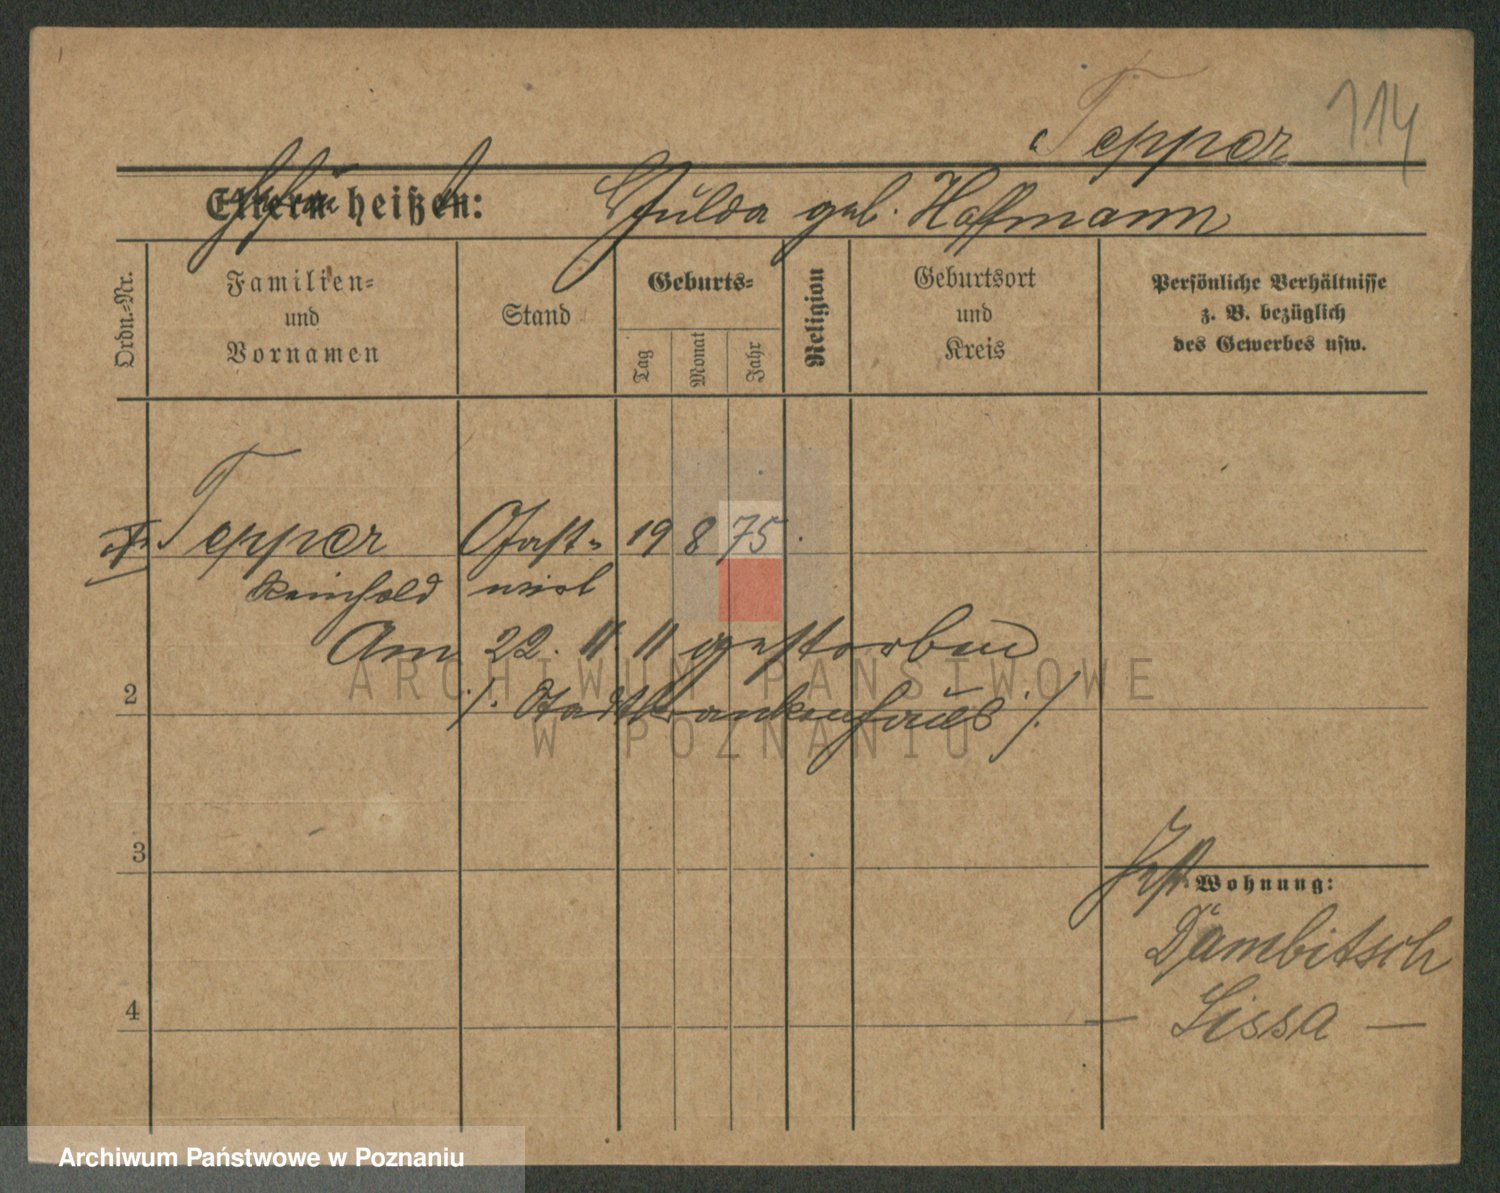 Tepper 114
Eltern heißen: Hulda geb. Hoffmann
Ordn.-Nr.
Familien-
und
Vornamen
Stand
Geburts-
Tag
Monat
Jahr
Religion
Geburtsort
und
Kreis
Persönliche Verhältnisse
z. B. bezüglich
des Gewerbes usw.
Tepper Gast- 19 8 75
Reinhold wirt
Am 22. 11. 11 gestorben
2
./. Stadtkrankenhaus ./.
ARCHIWUM PAŃSTWOWE
W POZNANIU
3
Wohnung:
Dambitsch
4
— Lissa —
Archiwum Państwowe w Poznaniu